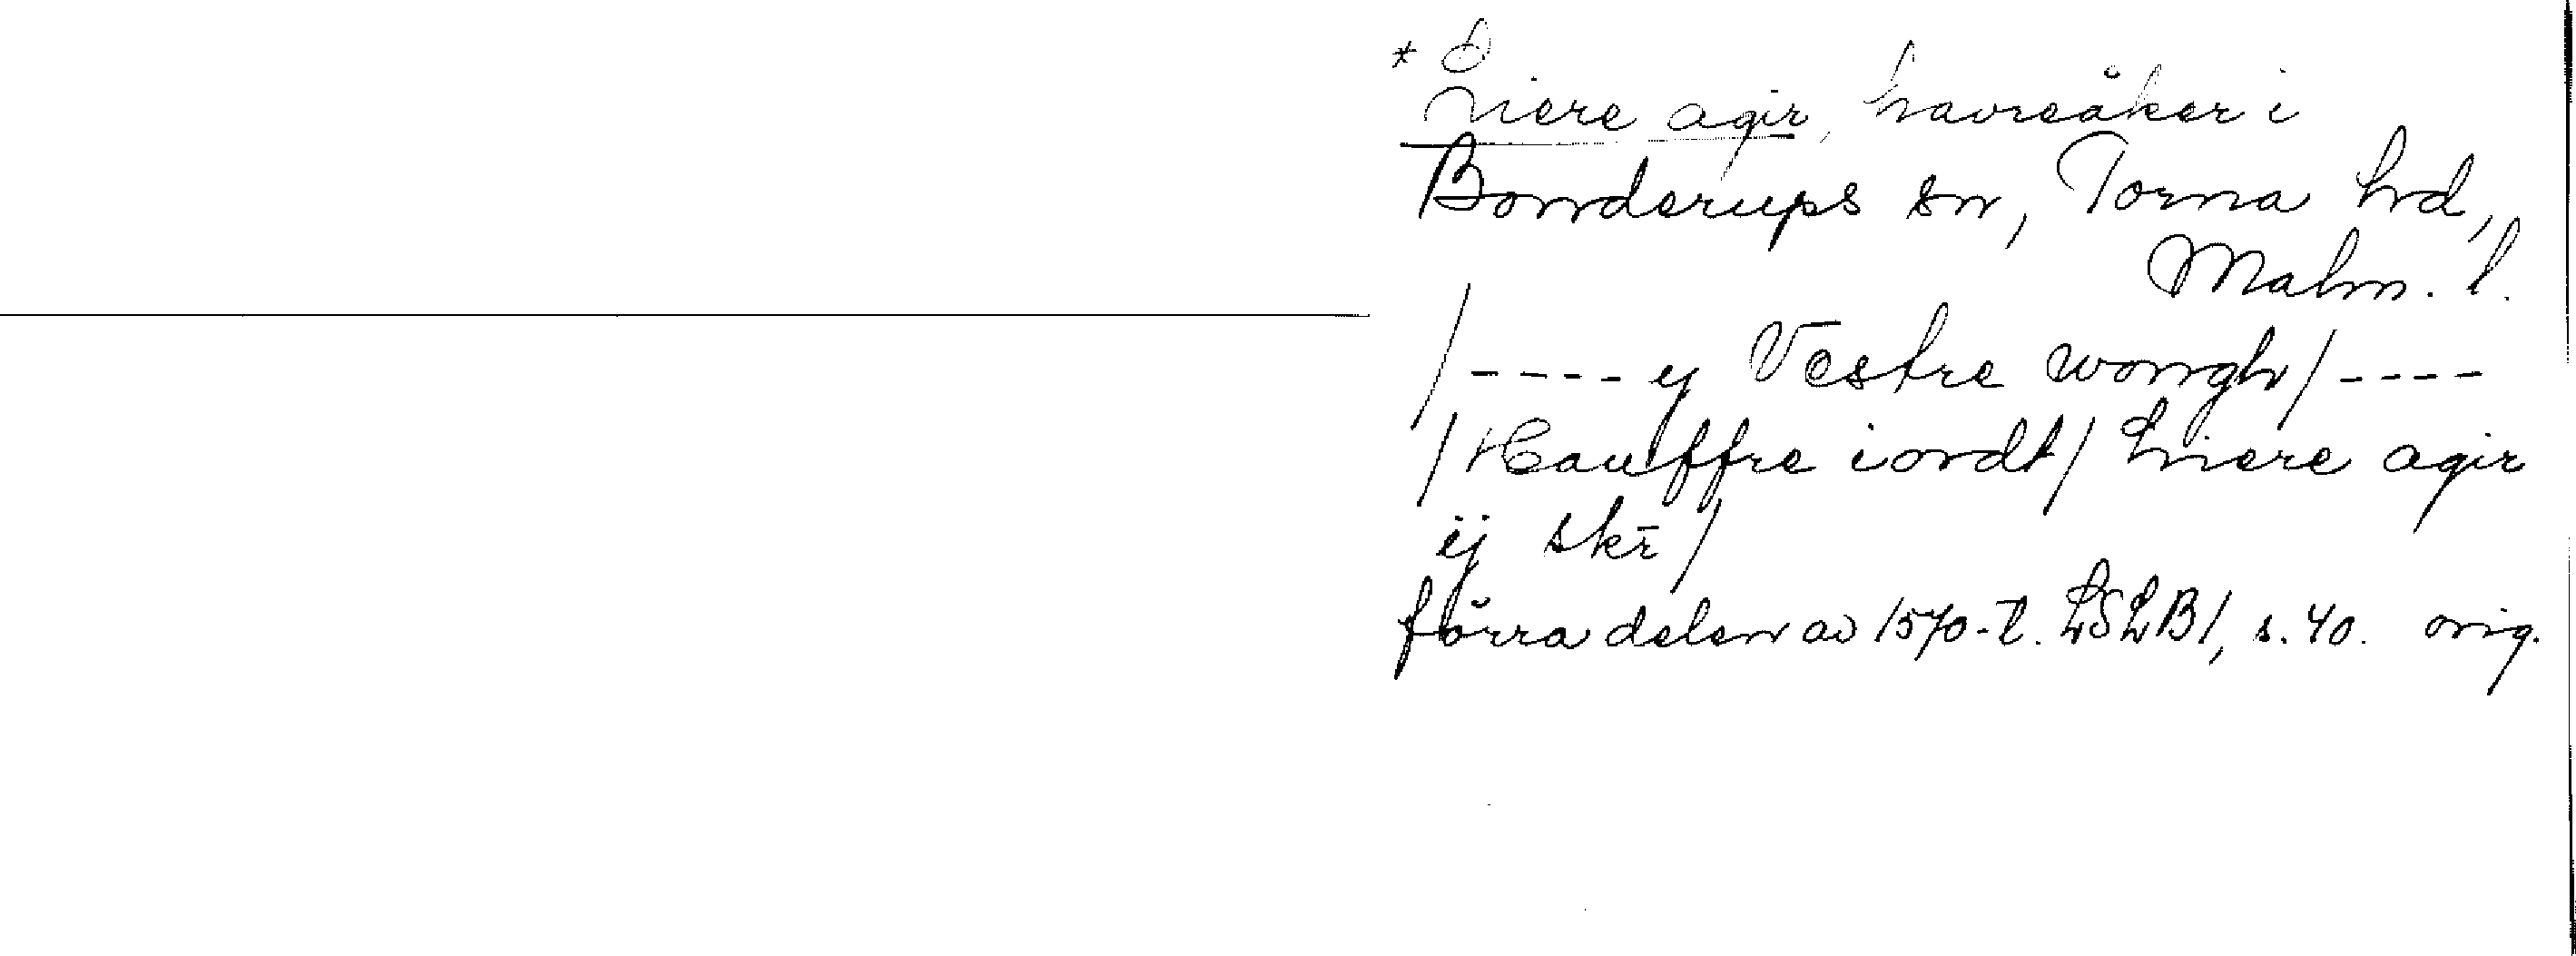 * Hiere agir, havreåker i
Bonderups sn, Torna hd,
Malm. l.
/---- y Vestre wongh/ ----
/Hauffre iordt/ hiere agir
ij skr̄/
förra delen av 1570-t. LSLB1, s. 40. orig.